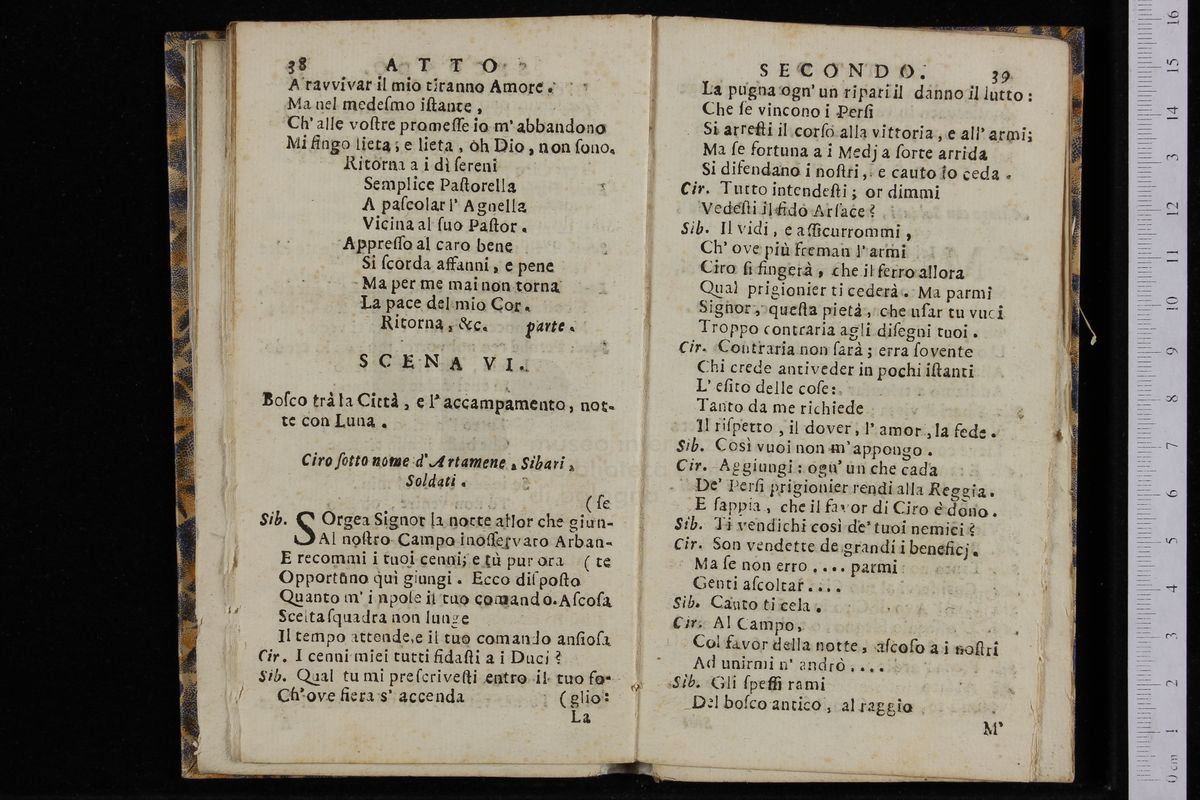 38 ATTO
A ravvivar il mio tiranno Amore.
Ma nel medeſmo iſtante,
Ch' alle voſtre promeſſe io m' abbandono
Mi fingo lieta, e lieta, oh Dio, non ſono.
Ritorna a i dì ſereni
Semplice Paſtorella
A paſcolar l' Agnella
Vicina al ſuo Paſtor.
Appreſſo al caro bene
Si ſcorda affanni, e pene
Ma per me mai non torna
La pace del mio Cor.
Ritorna, &c. parte.
SCENA VI.
Boſco trà la Città, e l' accampamento, not-
te con Luna.
Ciro ſotto nome d' Artamene, Sibari,
Soldati.
(ſe
Sib. SOrgea Signor la notte allor che giun-
Al noſtro Campo inoſſervato Arban-
E recommi i tuoi cenni; e tù pur ora (te
Opportuno quì giungi. Ecco diſpoſto
Quanto m' impoſe il tuo comando. Aſcoſa
Scelta ſquadra non lunge
Il tempo attende, e il tuo comando anſioſa
Cir. I cenni miei tutti fidaſti a i Duci?
Sib. Qual tu mi preſcriveſti entro il tuo fo-
Ch' ove fiera s' accenda (glio:
La
SECONDO. 39
La pugna ogn' un ripari il danno il lutto:
Che ſe vincono i Perſi
Si arreſti il corſo alla vittoria, e all' armi;
Ma ſe fortuna a i Medj a ſorte arrida
Si difendano i noſtri, e cauto io ceda.
Cir. Tutto intendeſti; or dimmi
Vedeſti il fido Arſace?
Sib. Il vidi, e aſſicurrommi,
Ch' ove più freman l' armi
Ciro ſi fingerà, che il ferro allora
Qual prigionier ti cederà. Ma parmi
Signor, queſta pietà, che uſar tu vuoi
Troppo contraria agli diſegni tuoi.
Cir. Contraria non ſarà; erra ſovente
Chi crede antiveder in pochi iſtanti
L' eſito delle coſe:
Tanto da me richiede
Il riſpetto, il dover, l' amor, la fede.
Sib. Così vuoi non m' appongo.
Cir. Aggiungi: ogn' un che cada
De' Perſi prigionier rendi alla Reggia.
E ſappia, che il favor di Ciro è dono.
Sib. Ti vendichi così de' tuoi nemici?
Cir. Son vendette de grandi i beneficj.
Ma ſe non erro .... parmi
Genti aſcoltar ....
Sib. Cauto ti cela.
Cir. Al Campo,
Col favor della notte, aſcoſo a i noſtri
Ad unirmi n' andrò ....
Sib. Gli ſpeſſi rami
Del boſco antico, al raggio
M'